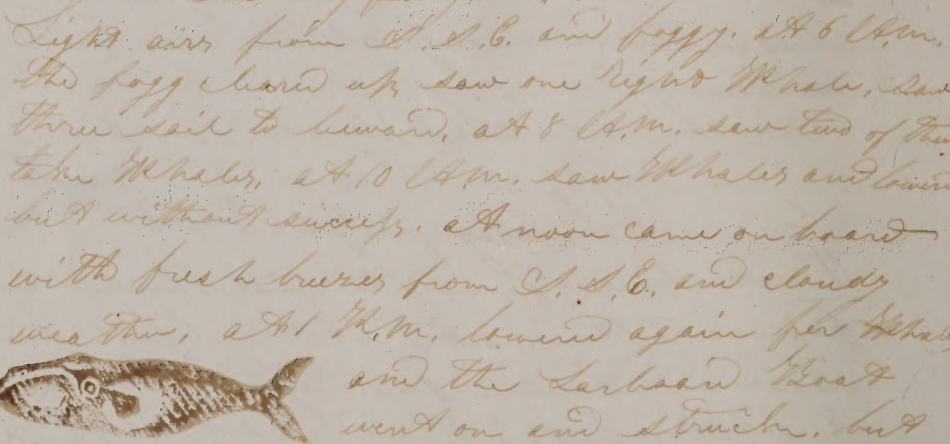 Light airs from S.S.E. and foggy. at 6 A.m.
the fogg cleard up saw one right Whale, saw
three sail to leward, at 8 A.m. saw two of them
take Whales, at 10 A.m. saw Whales and lowerd
but without success. at noon came on board
with fresh breezes from S.S.E. and cloudy
weather, at 1 P.m. lowered again for Whales
and the Larboard Boat
went on and struck, but